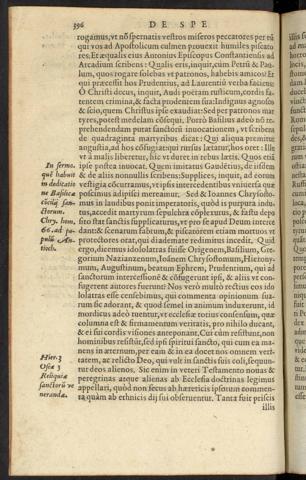 396 DE SPE
rogamus, vt nõ spernatis vestros miseros peccatores per eũ
qui vos ad Apostolicum culmen prouexit humiles piscato
res. Et æqualis eius Antonius Episcopus Constantiensis ad
Arcadium scribens: Qualis eris, inquit, cùm Petrũ & Pau-
lum, quos rogare solebas vt patronos, habebis amicos? Et
qui præcessit hos Prudentius, ad Laurentiũ verba faciens:
O Christi decus, inquit, Audi poetam rusticum, cordis fa-
tentem crimina, & facta prodentem sua: Indignus agnosco
& scio, quem Christus ipse exaudiat: Sed per patronos mar
tyres, potest medelam cõsequi. Porrò Basilius adeò nõ re-
prehendendam putat sanctorũ inuocationem, vt scribens
de quadraginta martyribus dicat: Qui aliqua premitur
angustia, ad hos cõfugiat: qui rursus lætatur, hos oret: Ille
vt à malis liberetur, hic vt duret in rebus lætis. Quos etiã
ipse postea inuocat. Quem imitatus Gaudẽtius, de iisdem
& de aliis nonnullis scribens: Supplices, inquit, ad eorum
vestigia cõcurramus, vt ipsis intercedentibus vniuersa quæ
poscimus adipisci mereamur. Sed & Ioannes Chrysosto-
mus in laudibus ponit imperatoris, quòd is purpura indu-
tus, accedit martyrum sepulchra cõplexurus, & fastu depo
sito stat sanctis supplicaturus, vt pro se apud Deum interce
dant: & scenarum fabrum, & piscatorem etiam mortuos vt
protectores orat, qui diademate redimitus incedit. Quid
ergo, dicemus idololatras fuisse Origenem, Basilium, Gre-
gorium Nazianzenum, Ioannem Chrysostomum, Hierony-
mum, Augustinum, beatum Ephrem, Prudentium, qui ad
sanctorum intercessionẽ & cõfugerint ipsi, & aliis vt con-
fugerent autores fuerunt? Nos verò multo rectius eos ido
lolatras esse censebimus, qui commenta opinionum sua-
rum sic adorant, & quod semel in animum induxerunt, id
mordicus adeò tuentur, vt ecclesiæ totius consensum, quæ
columna est & firmamentum veritatis, pro nihilo ducant,
& ei sui cordis visiones anteponant. Cùm resistunt, non
hominibus resistũt, sed ipsi spiritui sancto, qui cum ea ma-
nens in æternum, per eam & in ea docet nos omnem veri-
tatem, ac relicto Deo, qui vult in sanctis suis coli, sequun-
tur deos alienos. Sic enim in veteri Testamento nouas &
peregrinas atque alienas ab Ecclesia doctrinas legimus
appellari, quòd non secus ab hæreticis ipsorum commen-
ta, quàm ab ethnicis dij sui obseruentur. Tanta fuit priscis
illis
In sermo.
quẽ habuit
in deditatio
ne Basilicæ
cõciliũ san-
ctorum.
Chry. hom.
66. ad po-
pulũ An-
tioch.
Hier. 3
Osee 3
Reliquiæ
sanctorũ ve
nerandæ.